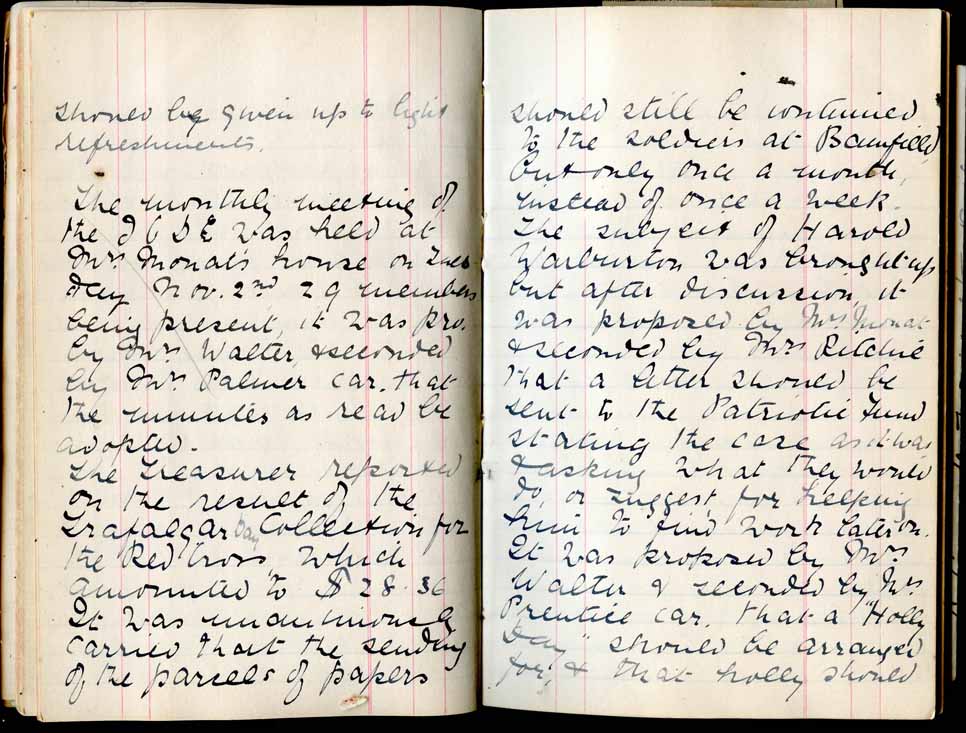 should be given up to light
refreshments.
The monthly meeting of
the I O D E was held at
Mrs Monat's house on Tues
day Nov. 2nd 29 members
being present, it was pro.
by Mrs Walter & seconded
by Mrs Palmer car. that
the minutes as read be
adopted.
The Treasurer reported
on the result of the
Trafalgar Day Collection for
the Red Cross, which
amounted to $28.36
It was unanimously
carried that the sending
of the parcels of papers
should still be continued
to the soldiers at Bamfield,
but only once a month,
instead of once a week.
The subject of Harold
Warburton was brought up
but after discussion, it
was proposed by Mrs Monat
& seconded by Mrs Ritchie
that a letter should be
sent to the Patriotic Fund
stating the case as it was
& asking what they would
do, or suggest, for helping
him to find work later on.
It was proposed by Mrs
Walter & seconded by Mrs
Prentice car. that a "Holly
Day" should be arranged
for, & that holly should